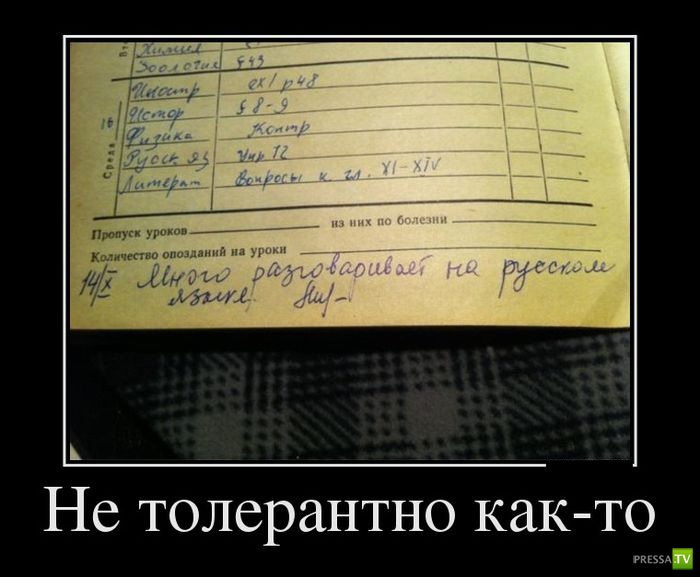 Химия
Зоология §43
Иностр ех1 р48
Истор § 8-9
16
Физика Контр
Среда
Русск яз Упр 72
Литерат Вопросы к гл. XI-XIV
Пропуск уроков из них по болезни
Количество опозданий на уроки
14/X Много разговаривает на русском
языке.
Не толерантно как-то
PRESSA TV